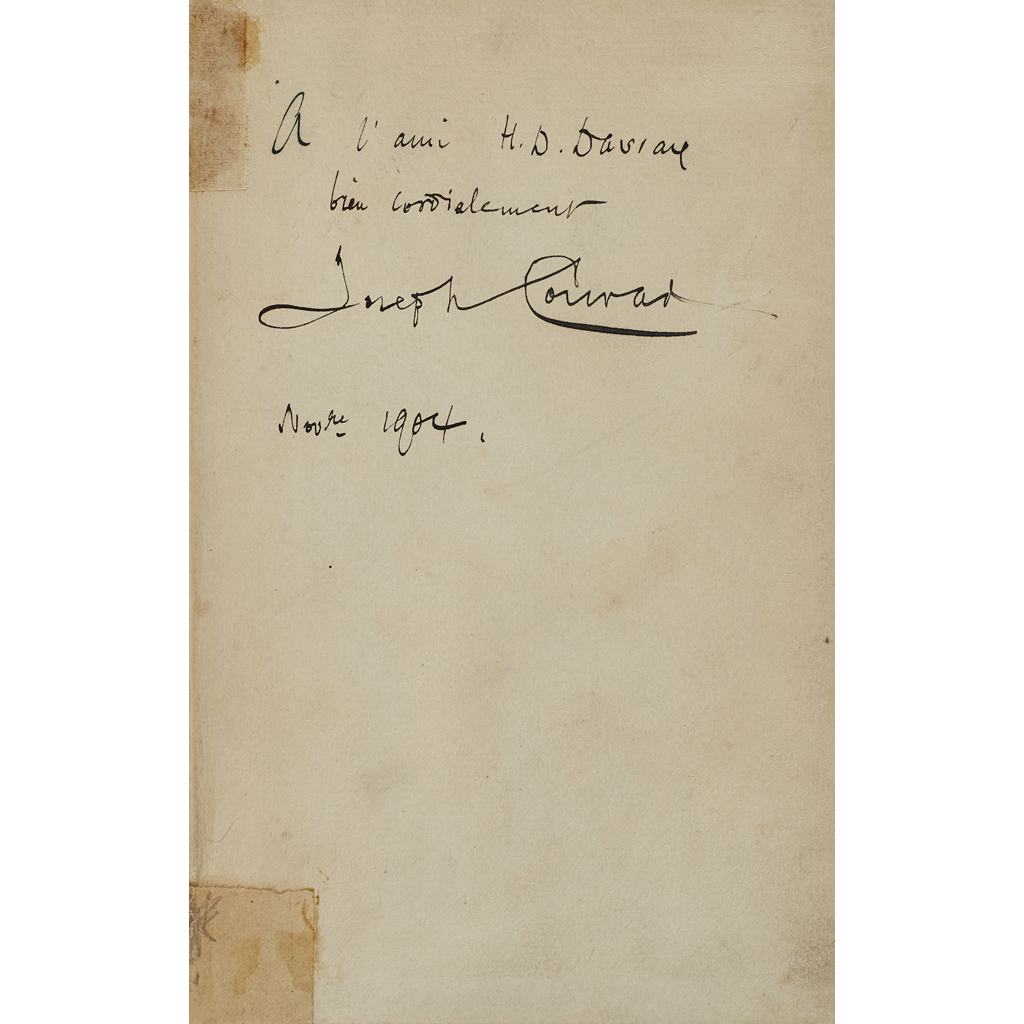 À l'ami H. D. Davray
bien cordialement
Joseph Conrad
Novre 1904.